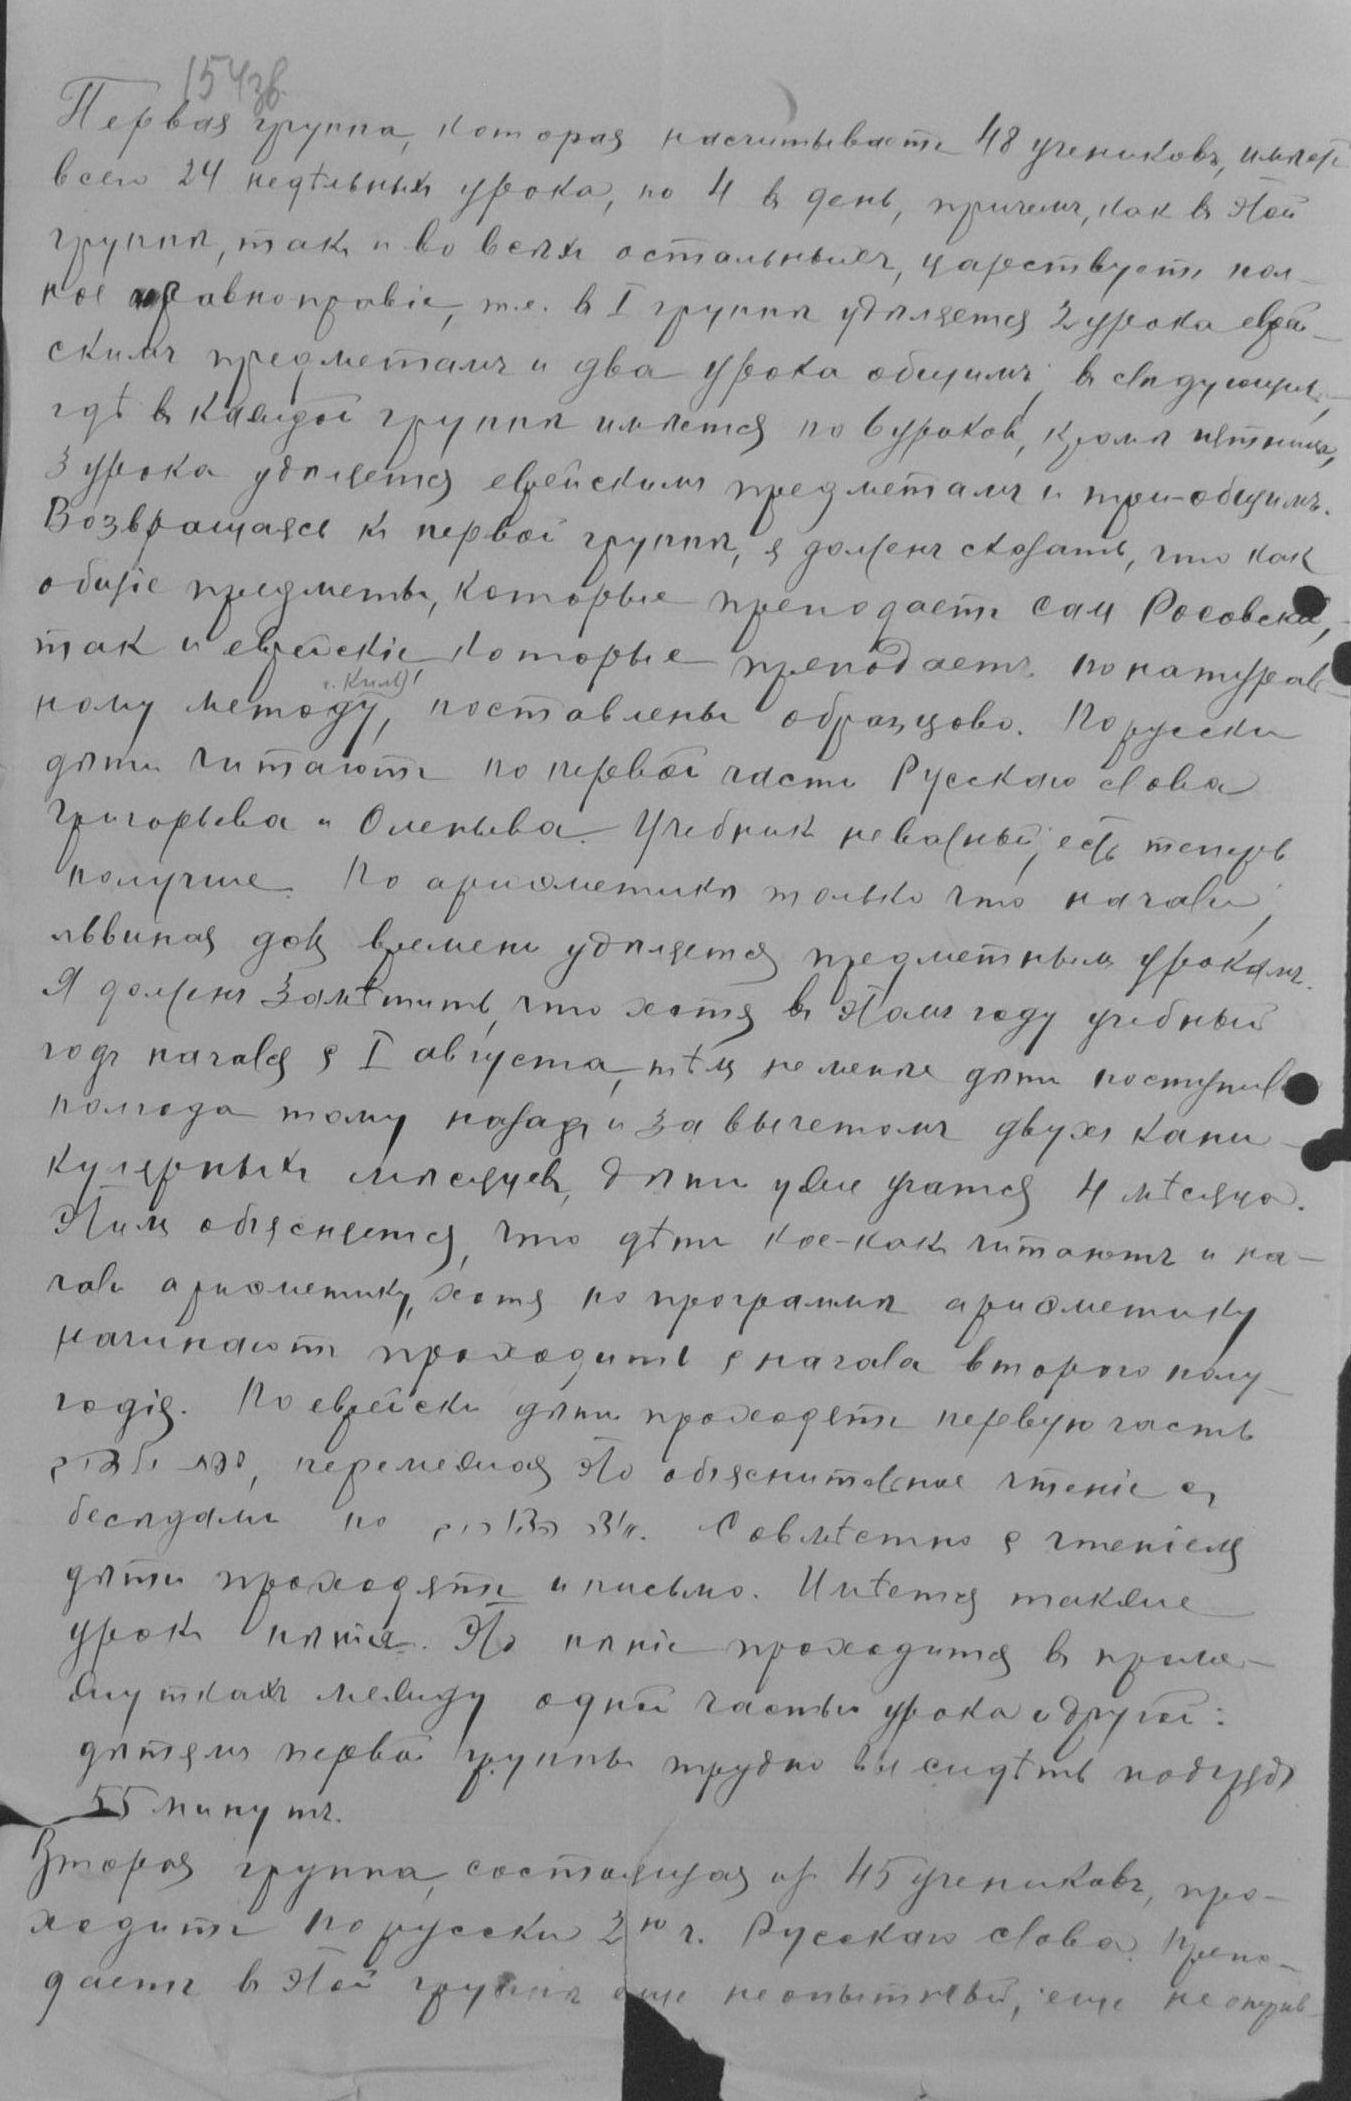 154 зв.
Первая группа, которая насчитываетъ 48 учениковъ, имѣетъ
всего 24 недѣльныхъ урока, по 4 въ день, причемъ, какъ въ этой
группѣ, такъ и во всѣхъ остальныхъ, царствуетъ пол-
ное равноправіе, т.е. въ I группѣ удѣляется 2 урока еврей-
скимъ предметамъ и два урока общимъ; въ слѣдующихъ,
гдѣ въ каждой группѣ имѣется по 6 уроковъ, кромѣ пятницы,
3 урока удѣляется еврейскимъ предметамъ и три - общимъ.
Возвращаясь къ первой группѣ, я долженъ сказать, что какъ
общіе предметы, которые преподаетъ самъ Росовскій,
такъ и еврейскіе, которые преподаетъ по натураль-
ному методу, поставлены образцово. По русски
дѣти читаютъ по первой части Русскаго слова
Григорьева и Оленьева. Учебникъ неважный, есть теперь
получше. По ариѳметикѣ только что начали,
львиная доля времени удѣляется предметнымъ урокамъ.
Я долженъ замѣтить, что хотя въ этомъ году учебный
годъ начался съ I августа, тѣмъ не менѣе дѣти поступили
полгода тому назадъ и за вычетомъ двухъ кани-
кулярныхъ мѣсяцевъ, дѣти уже учатся 4 мѣсяца.
Этимъ объясняется, что дѣти кое-какъ читаютъ и на-
чали ариѳметику, хотя по программѣ ариѳметику
начинаютъ проходить съ начала второго полу-
годія. По еврейски дѣти проходятъ первую часть
перемежая это объяснительное чтеніе съ
бесѣдами по Совмѣстно съ чтеніемъ
дѣти проходятъ и письмо. Имѣется также
урокъ пѣнія. Это пѣніе проходится въ проме-
жуткахъ между одной частью урока и другой:
дѣтямъ первой группы трудно высидѣть подрядъ
55 минутъ.
Вторая группа, состоящая изъ 45 учениковъ, про-
ходитъ по русски 2ую ч. Русскаго слова. Препо-
даетъ въ этой группѣ еще неопытный, еще не